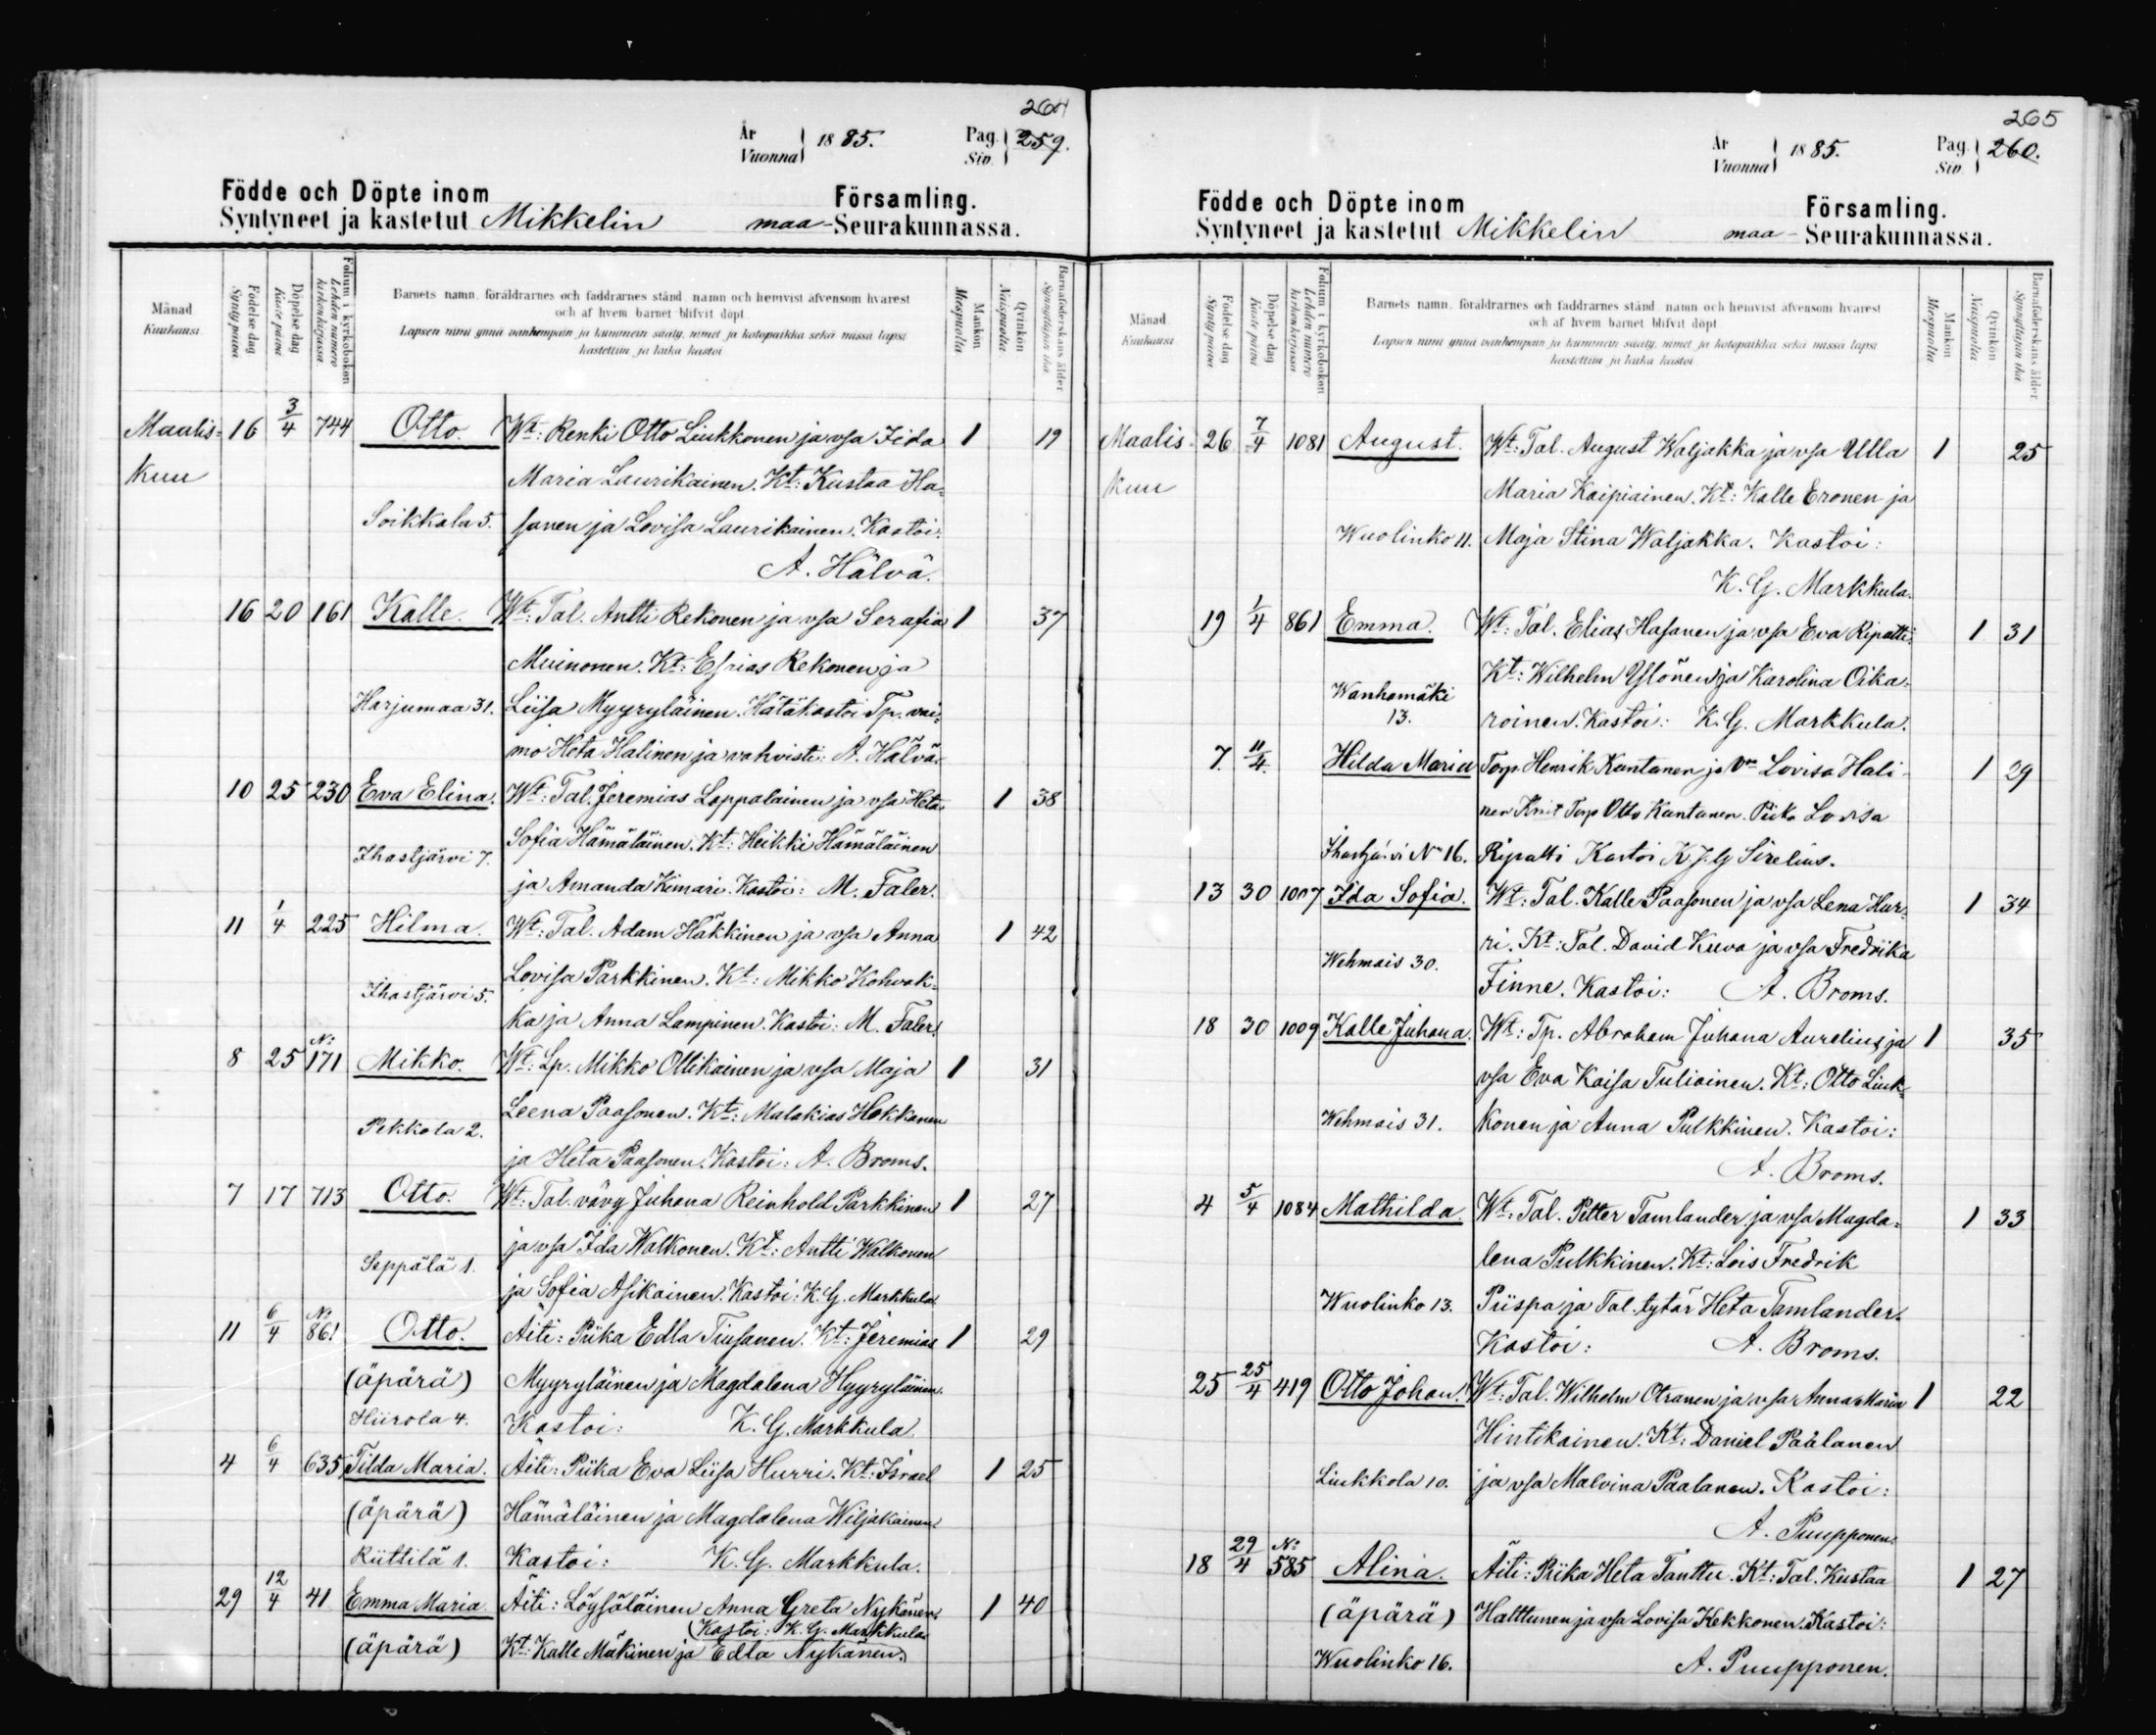 264
År Vuonna 1885. Pag. Siv. 259.
Födde och Döpte inom Församling.
Syntyneet ja kastetut Mikkelin maa-Seurakunnassa.
Månad Kuukausi
Födelse dag Synty päivä
Döpelse dag Kaste päivä
Folium i kyrkoboken Lehden numero kirkonkirjassa
Barnets namn, föräldrarnes och faddrarnes stånd, namn och hemvist äfvensom hvarest
och af hvem barnet blifvit döpt
Lapsen nimi ynnä vanhempain ja kummein sääty, nimet ja kotopaikka sekä missä lapsi
kastettiin ja kuka kastoi
Mankön Miespuolia
Qvinkön Naispuolia
Barnaföderskans ålder Synnyttäjän ikä
Maalis- 16 3/4 744 Otto. Wt: Renki Otto Liukkonen ja vsa Iida 1 19
kuu Maria Laurikainen. Kt: Kustaa Ha-
Soikkala 5. sanen ja Lovisa Laurikainen. Kastoi:
A. Hälvä.
16 20 161 Kalle. Wt: Tal. Antti Rekonen ja vsa Serafia 1 37
Muinonen. Kt: Esrias Rekonen ja
Harjumaa 31. Liisa Myyryläinen. Hätäkastoi Tp. vai-
mo Heta Halinen ja vahvisti: A. Hälvä.
10 25 230 Eva Elina. Wt: Tal. Jeremias Lappalainen ja vsa Heta 1 38
Sofia Hämäläinen. Kt: Heikki Hämäläinen
Ihastjärvi 7.
ja Amanda Kimari. Kastoi: M. Faler.
11 1/4 225 Hilma. Wt: Tal. Adam Häkkinen ja vsa Anna 1 42
Lovisa Parkkinen. Kt: Mikko Kohvak-
Ihastjärvi 5.
ka ja Anna Lampinen. Kastoi: M. Faler.
8 25 No 171 Mikko. Wt: Lp. Mikko Ollikainen ja vsa Maja 1 31
Leena Paasonen. Kt: Malakias Hokkanen
Pekkola 2.
ja Heta Paasonen. Kastoi: A. Broms.
7 17 713 Otto. Wt: Tal. vävy Juhana Reinhold Parkkinen 1 27
ja vsa Ida Walkonen. Kt: Antti Walkonen
Seppälä 1.
ja Sofia Asikainen. Kastoi: K. G. Markkula.
11 6/4 No 861 Otto. Äiti: Piika Edla Tiusanen. Kt: Jeremias 1 29
(äpärä) Myyryläinen ja Magdalena Hyyryläinen.
Hiirola 4. Kastoi: K. G. Markkula.
4 6/4 635 Tilda Maria. Äiti: Piika Eva Liisa Hurri. Kt: Israel 1 25
(äpärä) Hämäläinen ja Magdalena Wiljakainen.
Riittilä 1. Kastoi: K. G. Markkula.
29 12/4 41 Emma Maria. Äiti: Löysäläinen Anna Greta Nykänen. 1 40
(Kastoi: K. G. Markkula.
(äpärä) Kt: Kalle Mäkinen ja Edla Nykänen.
265
År Vuonna 1885. Pag. Siv. 260.
Födde och Döpte inom Församling.
Syntyneet ja kastetut Mikkelin maa-Seurakunnassa.
Månad Kuukausi
Födelse dag Synty päivä
Döpelse dag Kaste päivä
Folium i kyrkoboken Lehden numero kirkonkirjassa
Barnets namn, föräldrarnes och faddrarnes stånd, namn och hemvist äfvensom hvarest
och af hvem barnet blifvit döpt
Lapsen nimi ynnä vanhempain ja kummein sääty, nimet ja kotopaikka sekä missä lapsi
kastettiin ja kuka kastoi
Mankön Miespuolia
Qvinkön Naispuolia
Barnaföderskans ålder Synnyttäjän ikä
Maalis- 26 7/4 1081 August. Wt: Tal. August Waljakka ja vsa Ulla 1 25
kuu Maria Kaipiainen. Kt: Kalle Eronen ja
Wuolinko 11. Maja Stina Waljakka. Kastoi:
K. G. Markkula.
19 1/4 861 Emma. Wt: Tal. Elias Hasanen ja vsa Eva Ripatti. 1 31
Kt: Wilhelm Ylönen ja Karolina Oika-
Wanhamäki
13. roinen. Kastoi: K. G. Markkula.
7. 11/4. Hilda Maria Torp. Henrik Kuntanen ja Vm Lovisa Hali- 1 29
nen Torp Otto Kuntanen. Piika Lovisa
Ihastjärvi No 16. Ripatti Kastoi K J G Sirelius.
13 30 1007 Ida Sofia. Wt: Tal. Kalle Paasonen ja vsa Lena Hur- 1 34
ri. Kt: Tal. David Kuva ja vsa Fredrika
Wehmais 30.
Finne. Kastoi: A. Broms.
18 30 1009 Kalle Juhana. Wt: Tp. Abraham Juhana Aurelius ja 1 35
vsa Eva Kaisa Tuliainen. Kt: Otto Liuk-
Wehmais 31. konen ja Anna Pulkkinen. Kastoi:
A. Broms.
4 5/4 1084 Mathilda. Wt: Tal. Petter Tamlander ja vsa Magda- 1 33
lena Pulkkinen. Kt: Lois Fredrik
Wuolinko 13. Piispa ja Tal. tytär Heta Tamlander.
Kastoi: A. Broms.
25 25/4 419 Otto Johan. Wt: Tal. Wilhelm Otranen ja vsa Anna Maria 1 22
Hintikainen. Kt: Daniel Paalanen
Liukkola 10. ja vsa Malvina Paalanen. Kastoi:
A. Puupponen.
18 29/4 No 585 Alina. Äiti: Piika Heta Tanttu. Kt: Tal. Kustaa 1 27
(äpärä) Halttunen ja vsa Lovisa Kekkonen. Kastoi:
Wuolinko 16. A. Puupponen.